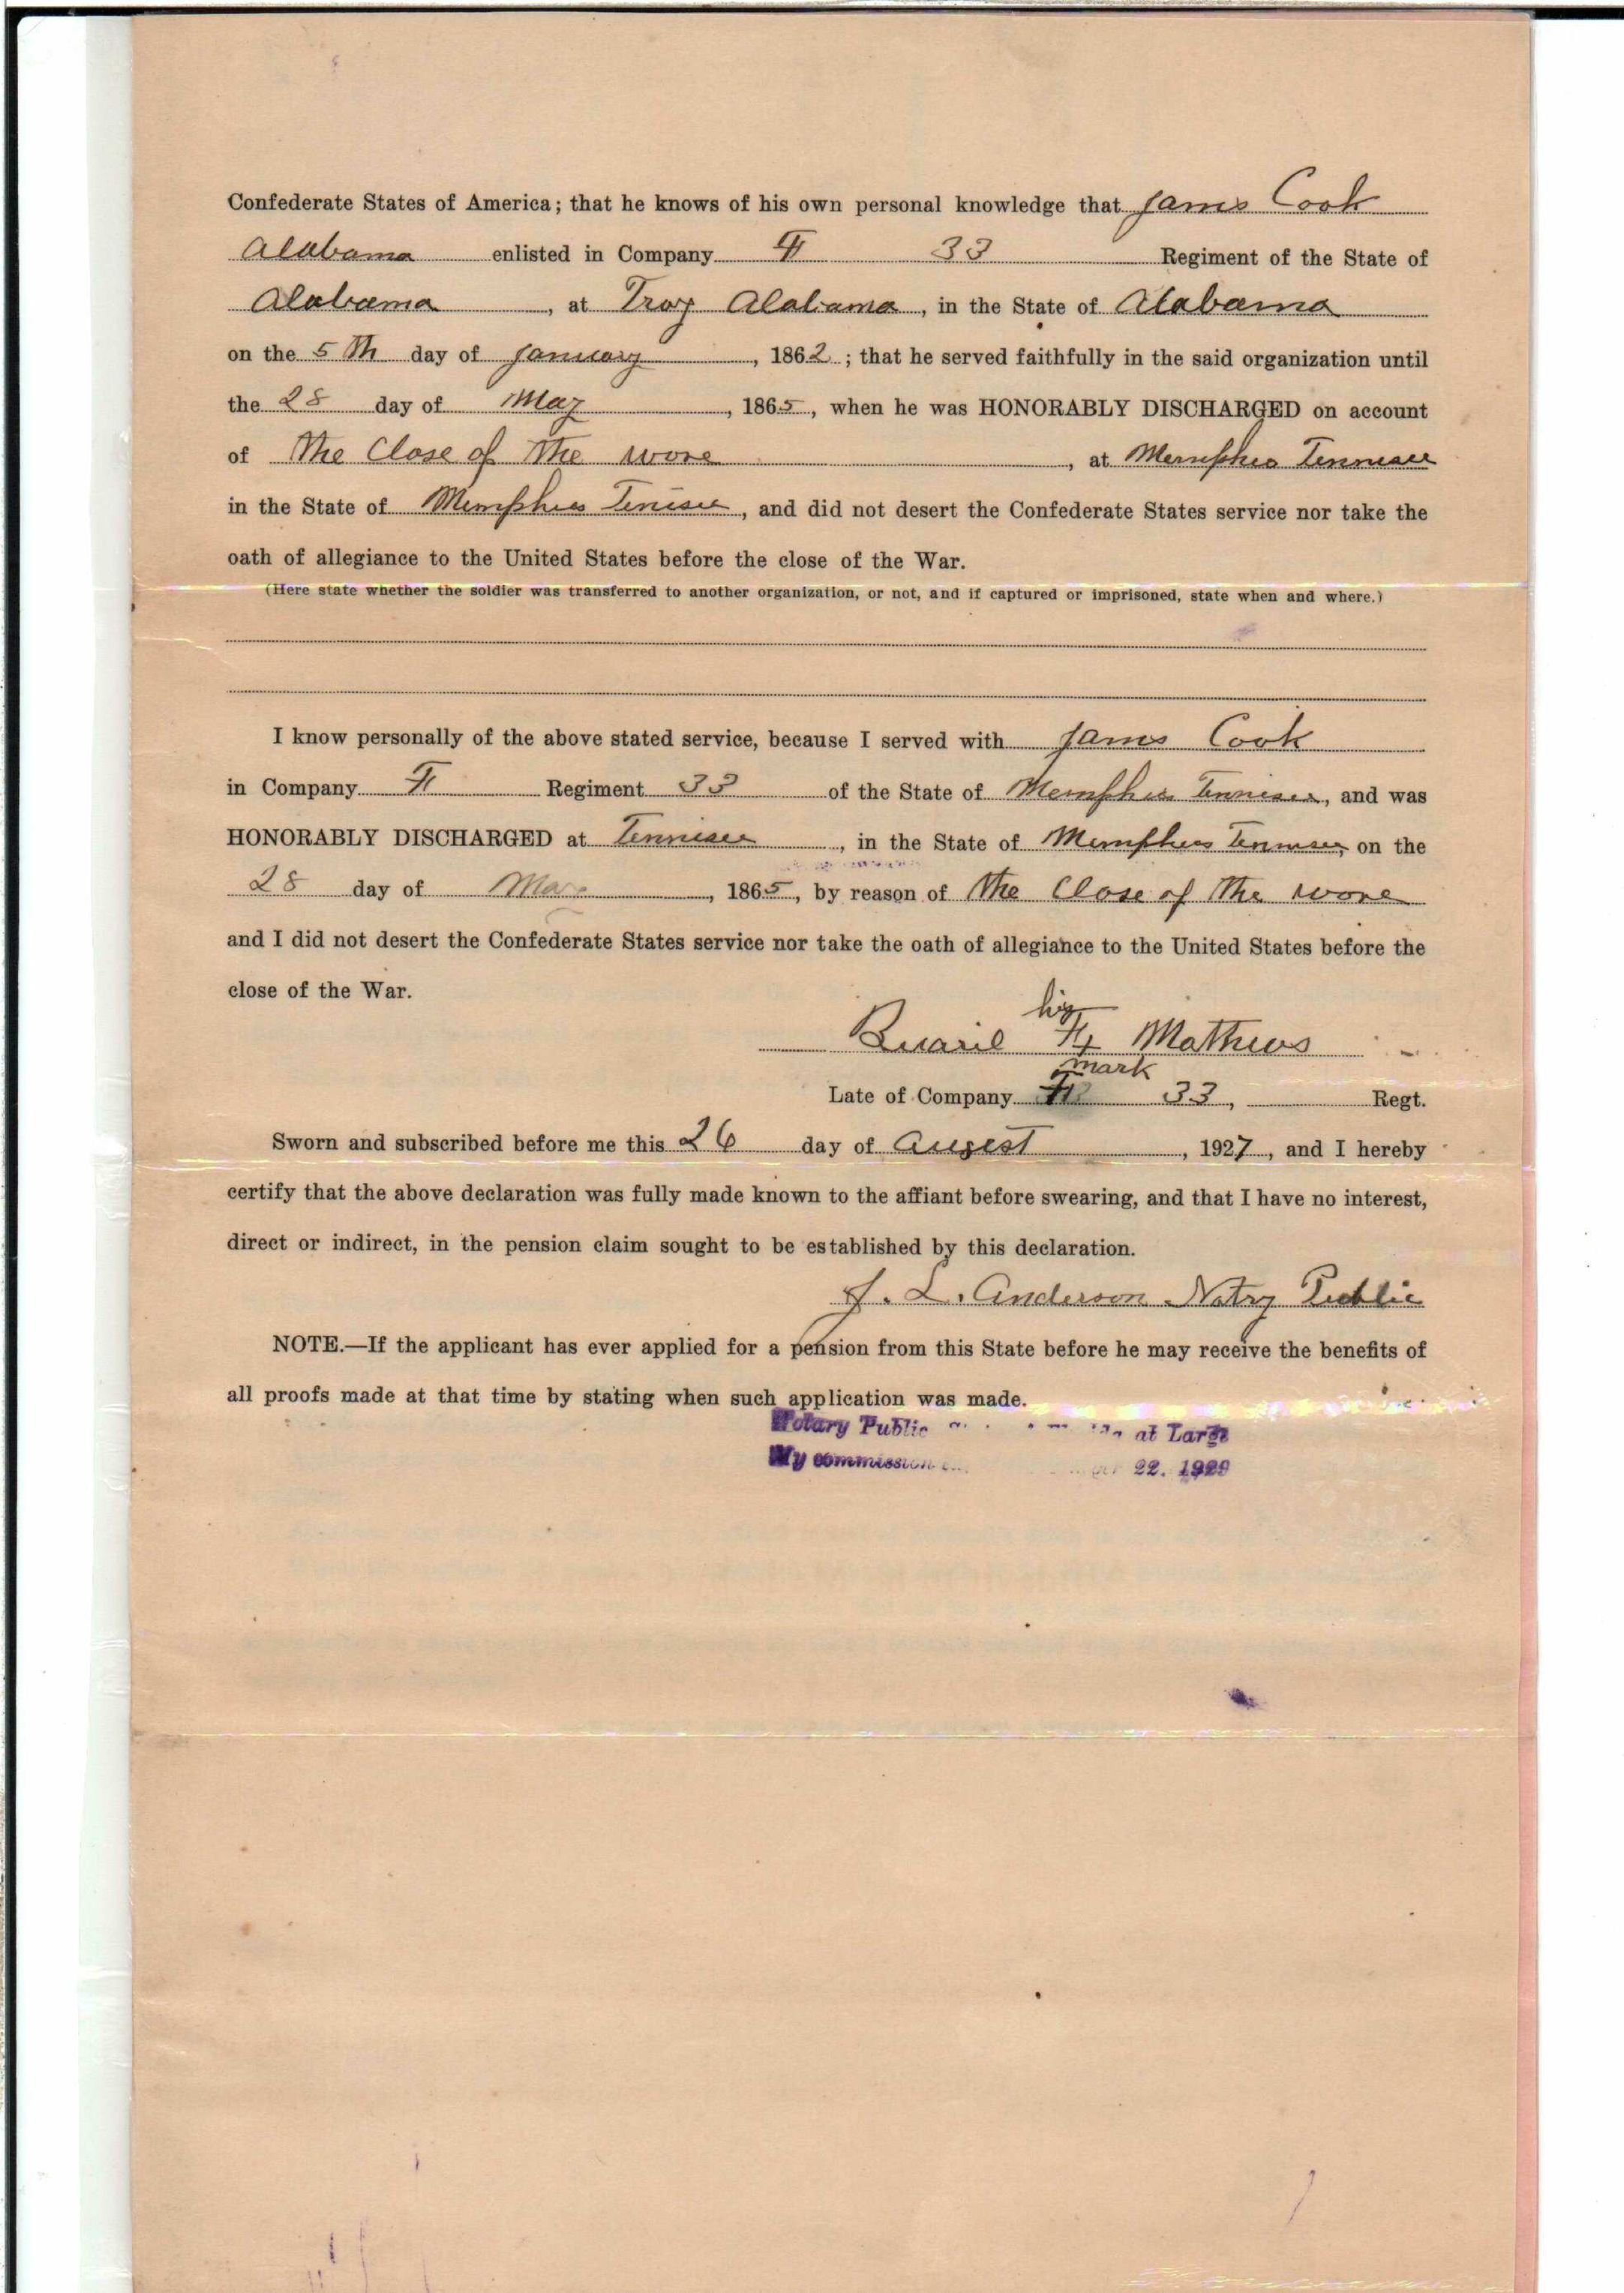 Confederate States of America; that he knows of his own personal knowledge that Jams Cook
Alabama enlisted in Company F 33 Regiment of the State of
Alabama, at Troy Alabama, in the State of Alabama
on the 5th day of January, 1862; that he served faithfully in the said organization until
the 28 day of May, 1865, when he was HONORABLY DISCHARGED on account
of The Close of The wore, at Memphis Tennisee
in the State of Memphis Tenisee, and did not desert the Confederate States service nor take the
oath of allegiance to the United States before the close of the War.
(Here state whether the soldier was transferred to another organization, or not, and if captured or imprisoned, state when and where.)
I know personally of the above stated service, because I served with Jams Cook
in Company F Regiment 33 of the State of Memphis Tennisee, and was
HONORABLY DISCHARGED at Tennisee, in the State of Memphis Tennisee, on the
28 day of May, 1865, by reason of The Close of The wore
and I did not desert the Confederate States service nor take the oath of allegiance to the United States before the
close of the War.
his
F X Mathews
mark
Late of Company F 33, Regt.
Sworn and subscribed before me this 26 day of Augest, 1927, and I hereby
certify that the above declaration was fully made known to the affiant before swearing, and that I have no interest,
direct or indirect, in the pension claim sought to be established by this declaration.
J. L. Anderson Notry Public
NOTE.—If the applicant has ever applied for a pension from this State before he may receive the benefits of
all proofs made at that time by stating when such application was made.
Notary Public at Large
My commission 22. 1929